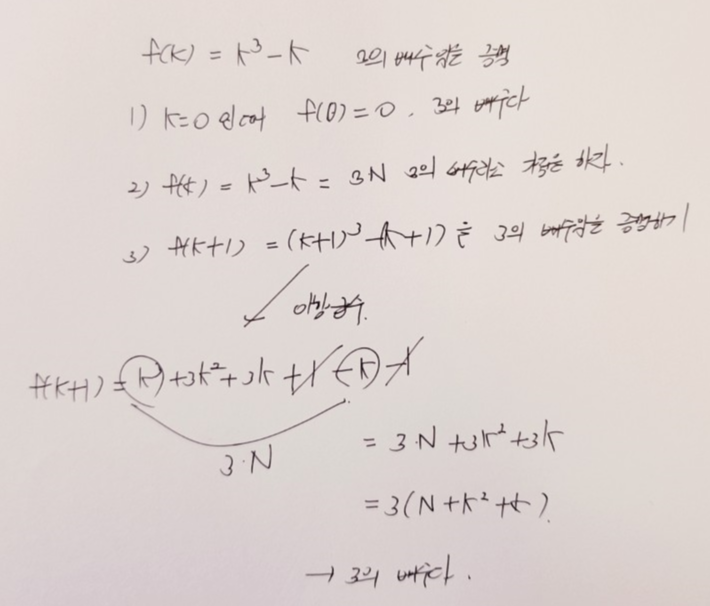 f(k) = k³-k 3의 배수임을 증명
1) k=0 일때 f(0)=0. 3의 배수다
2) f(k) = k³-k = 3N 3의 배수라고 가정을 하자.
3) f(k+1) = (k+1)³-(k+1)은 3의 배수임을 증명하기
이항급수.
f(k+1) = k³+3k²+3k+1-k-1
3·N
= 3·N+3k²+3k
= 3(N+k²+k)
→ 3의 배수다.